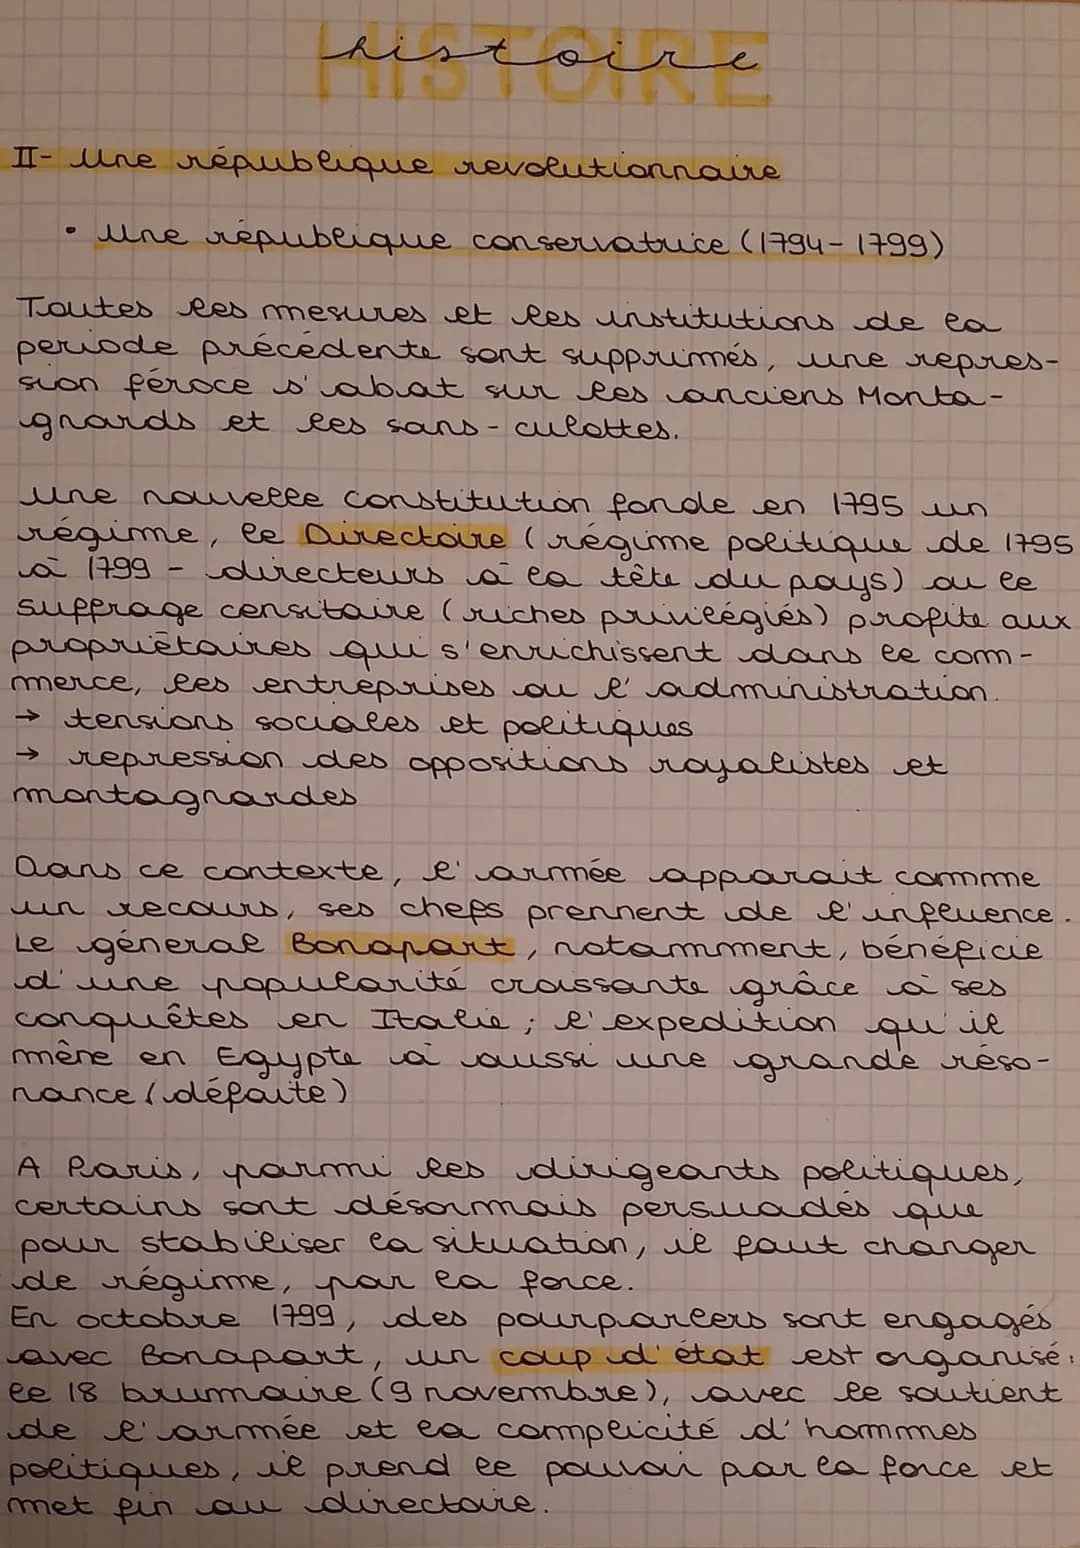 HISTOIRE
histoire
II- Une république revolutionnaire
• Une république conservatrice (1794-1799)
Toutes les mesures et les institutions de la
periode précédente sont supprimés, une repres-
sion féroce s'abat sur les anciens Monta-
gnards et les sans-culottes.
Une nouvelle constitution fonde en 1795 un
régime, le Directoire (régime politique de 1795
à 1799 - directeurs à la tête du pays) ou le
suffrage censitaire (riches privilégiés) profite aux
propriétaires qui s'enrichissent dans le com-
merce, les entreprises ou l'administration.
→ tensions sociales et politiques
→ repression des oppositions royalistes et
montagnardes
Dans ce contexte, l'armée apparait comme
un recours, ses chefs prennent de l'influence.
Le géneral Bonapart, notamment, bénéficie
d'une popularité croissante grâce à ses
conquêtes en Italie ; l'expedition qu'il
mêne en Egypte à aussi une grande réso-
nance (défaite)
A Paris, parmi les dirigeants politiques,
certains sont désormais persuadés que
pour stabiliser la situation, il faut changer
de régime, par la force.
En octobre 1799, des pourparlers sont engagés
avec Bonapart, un coup d'état est organisé :
le 18 brumaire (9 novembre), avec le soutient
de l'armée et la complicité d'hommes
politiques, il prend le pouvoir par la force et
met fin au directoire.